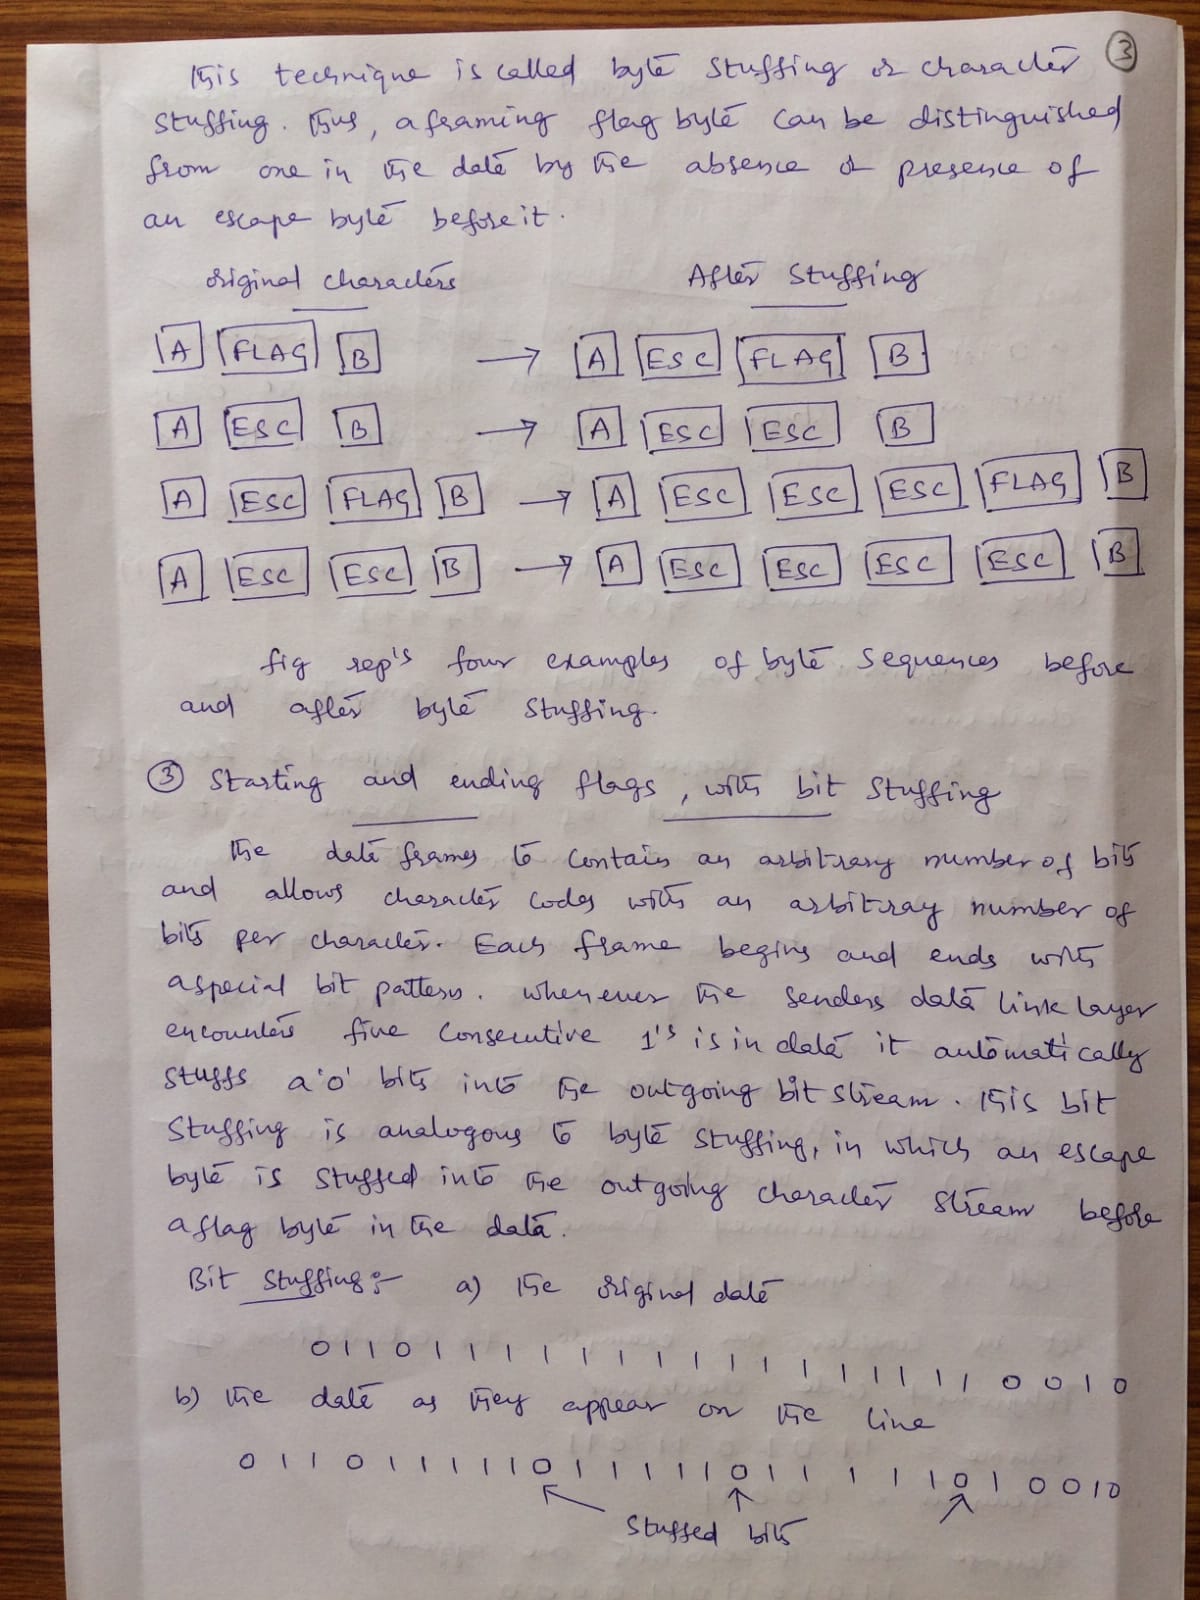 This technique is called byte stuffing or character ③
stuffing. Thus, a framing flag byte can be distinguished
from one in the data by the absence or presence of
an escape byte before it.
original characters After Stuffing
A FLAG B → A ESC FLAG B
A ESC B → A ESC ESC B
A ESC FLAG B → A ESC ESC ESC FLAG B
A ESC ESC B → A ESC ESC ESC ESC B
fig rep's four examples of byte sequences before
and after byte stuffing.
③ Starting and ending flags, with bit stuffing
The data frames to contain an arbitrary number of bits
and allows character codes with an arbitray number of
bits per character. Each frame begins and ends with
a special bit pattern. whenever the senders data link layer
encounters five consecutive 1's is in data it automatically
stuffs a '0' bits into the outgoing bit stream. This bit
stuffing is analogous to byte stuffing, in which an escape
byte is stuffed into the outgoing character stream before
a flag byte in the data.
Bit stuffing:- a) The original data
0 1 1 0 1 1 1 1 1 1 1 1 1 1 1 1 1 1 1 1 0 0 1 0
b) The data as they appear on the line
0 1 1 0 1 1 1 1 1 0 1 1 1 1 1 0 1 1 1 1 1 0 1 0 0 1 0
Stuffed bits